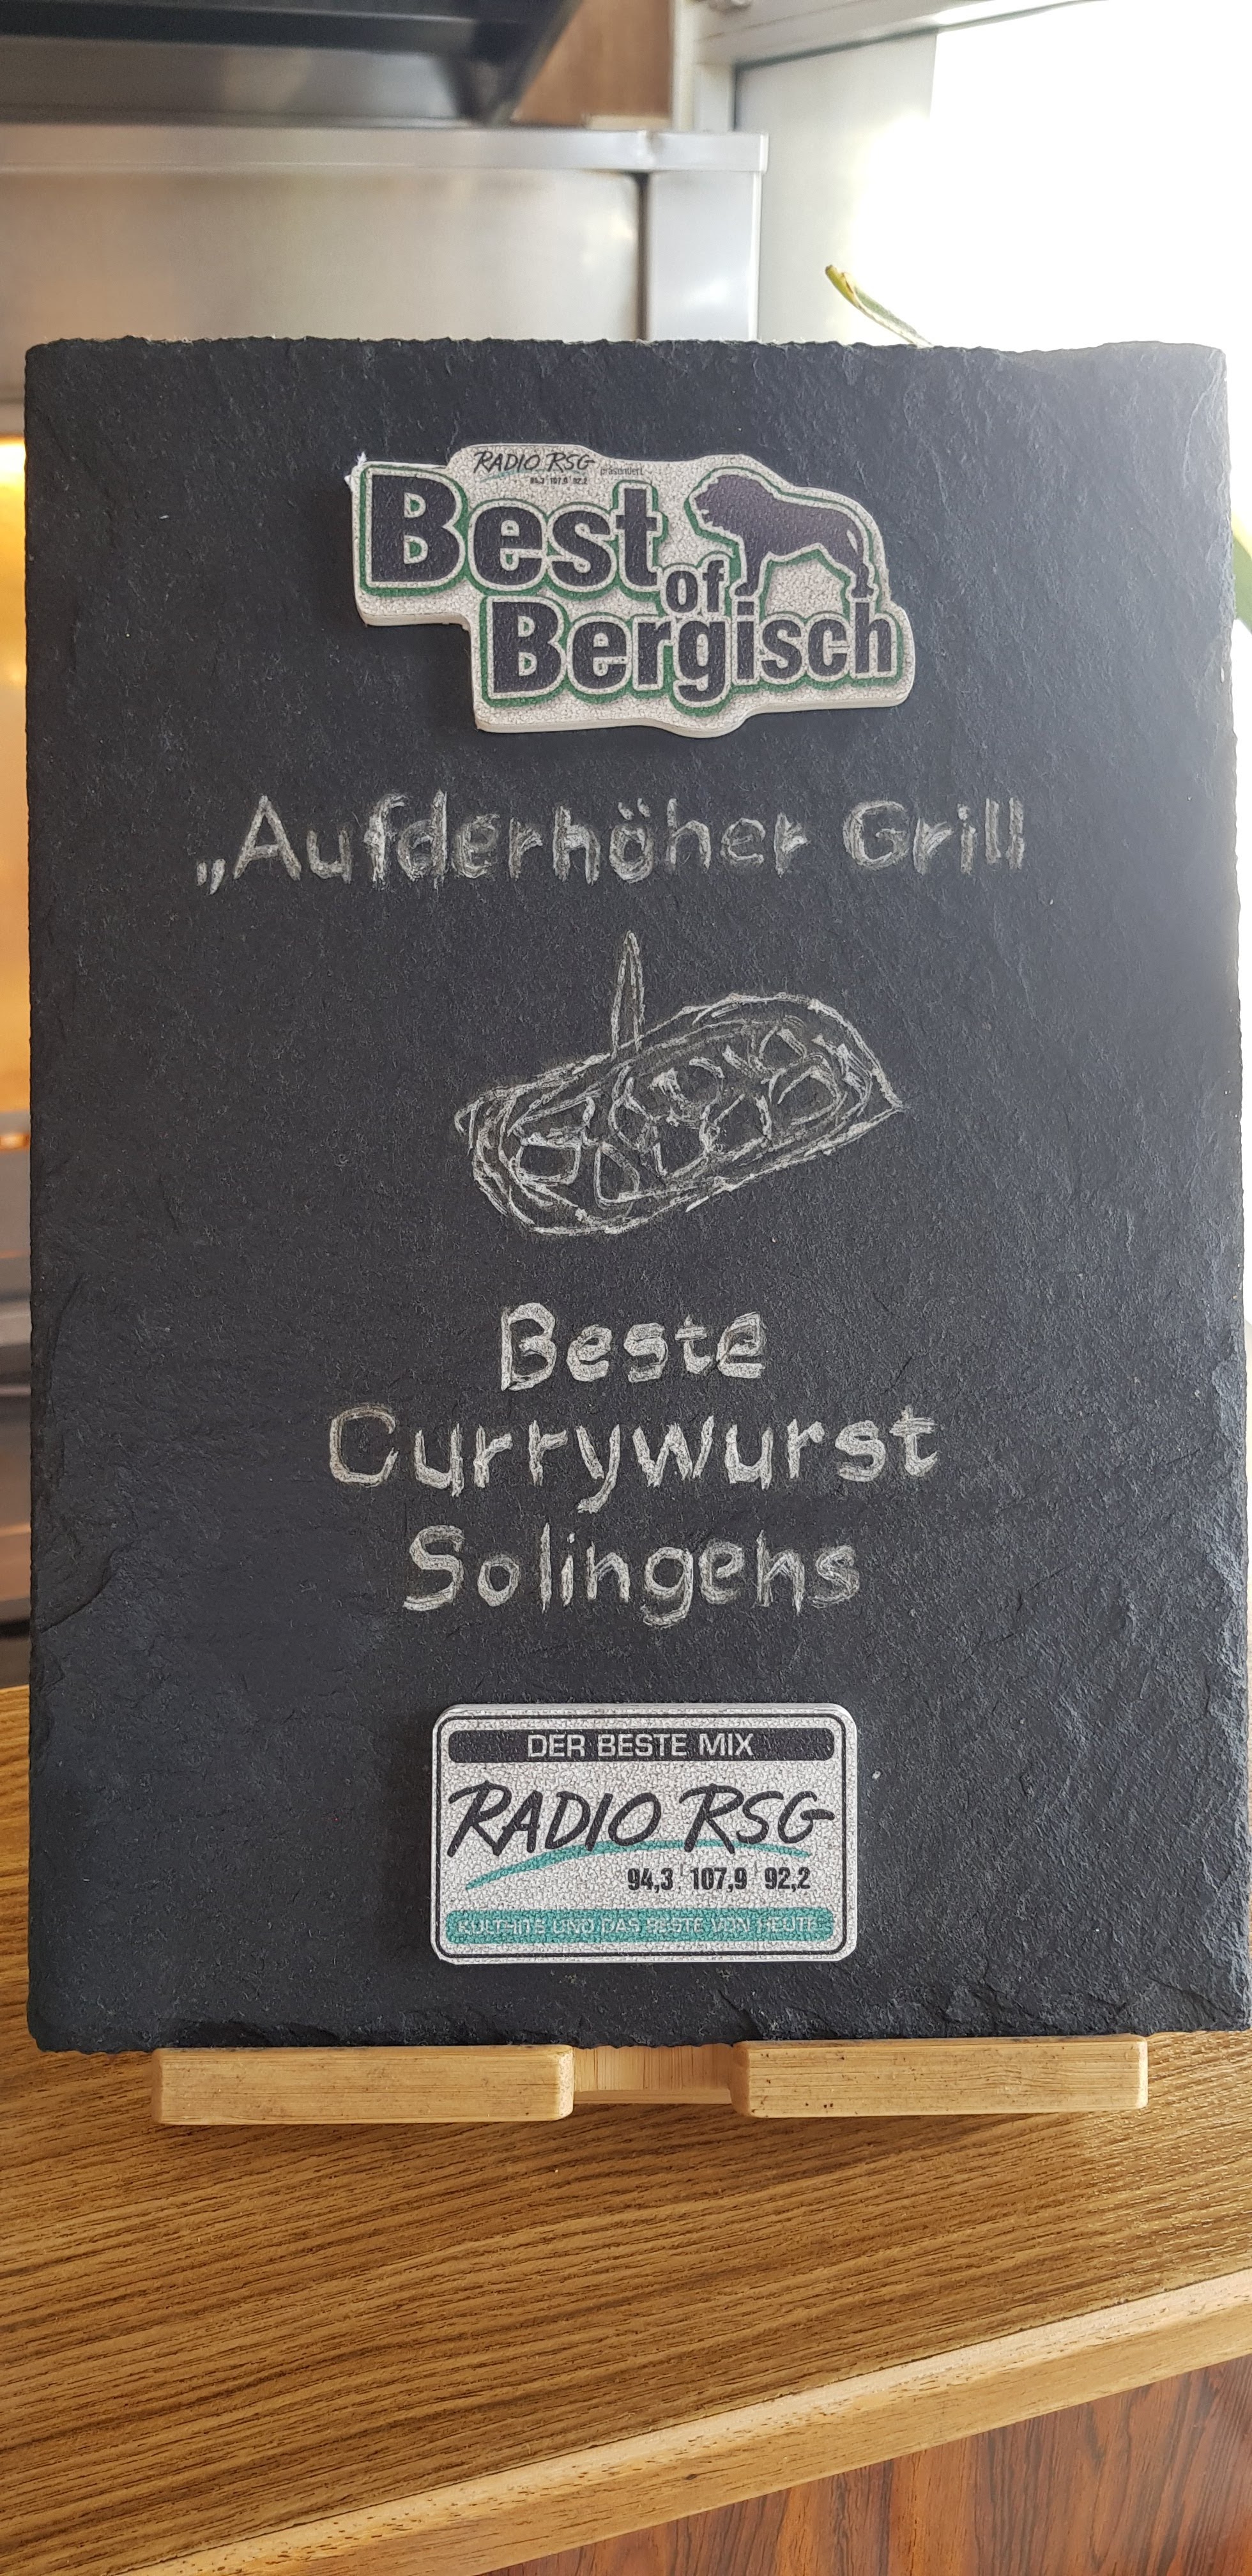 RADIO RSG präsentiert
94,3 107,9 92,2
Best
of
Bergisch
„Aufderhöher Grill
Beste
Currywurst
Solingens
DER BESTE MIX
RADIO RSG
94,3 107,9 92,2
KULTHITS UND DAS BESTE VON HEUTE